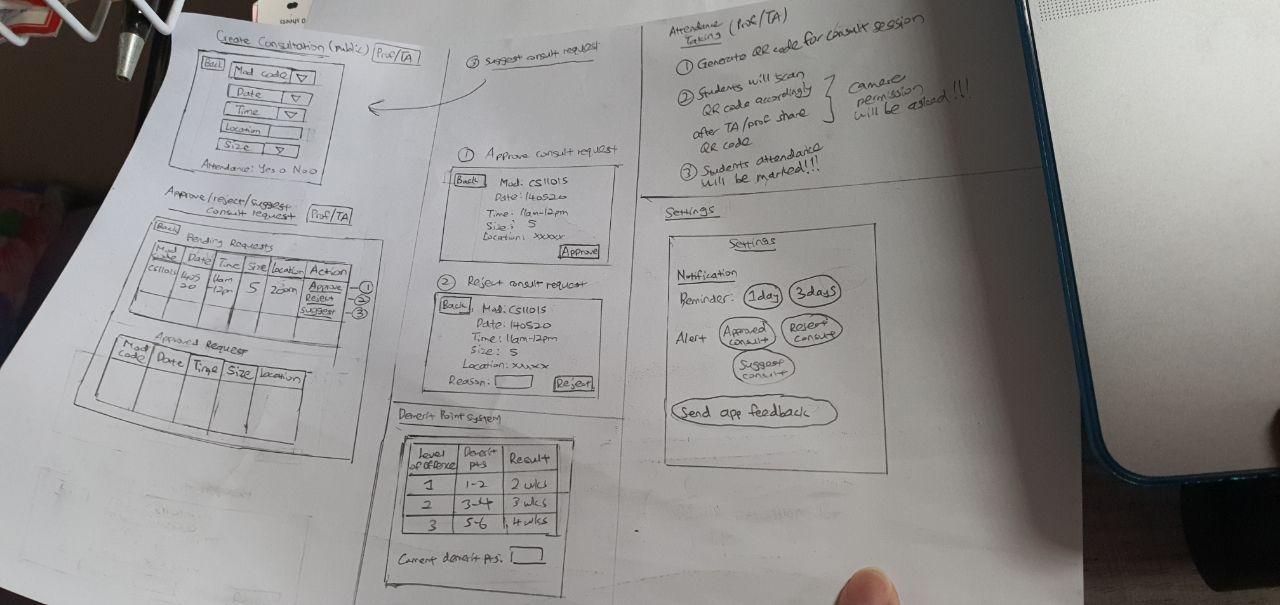 Create Consultation (public) Prof/TA
Back
Mod code
Date
Time
Location
Size
Attendance: Yes o No o
Approve/reject/suggest
consult request
Prof/TA
Back
Pending Requests
Mod Code Date Time Size Location Action
CS1101S 140520 11am-12pm 5 zoom Approve ①
Reject ②
Suggest ③
Approved Request
Mod code Date Time Size Location
③ Suggest consult request
① Approve consult request
Back Mod: CS1101S
Date: 140520
Time: 11am-12pm
Size: 5
Location: xxxxx
Approve
② Reject consult request
Back Mod: CS1101S
Date: 140520
Time: 11am-12pm
Size: 5
Location: xxxxx
Reason:
Reject
Demerit Point System
Level of offence Demerit pts Result
1 1-2 2 wks
2 3-4 3 wks
3 5-6 4 wks
Current demerit pts:
Attendance
Taking (Prof/TA)
① Generate QR code for consult session
② Students will scan
QR code accordingly
after TA/prof share
QR code
camera
permission
will be asked!!!
③ Students attendance
will be marked!!!
Settings
Settings
Notification
Reminder: 1 day 3 days
Alert Approved consult Reject consult
Suggest consult
Send app feedback